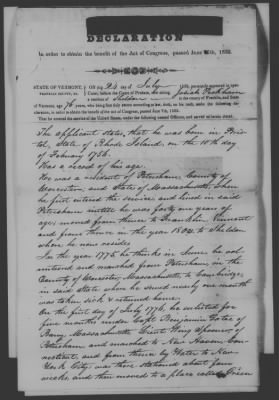 DECLARATION
In order to obtain the benefit of the Act of Congress, passed June 7th, 1832.
STATE OF VERMONT, On this 24 day of July 1832, personally appeared in open
FRANKLIN COUNTY, SS. Court, before the Court of Probate, now sitting, Josiah
a resident of Sheldon in the county of Franklin, and State
of Vermont, age 76 years, who being first duly sworn according to law, doth, on his oath, make the following
declaration, in order to obtain the benefit of the act of Congress, passed June 7th, 1832.
That he entered the service of the United States, under the following named Officers, and served as herein stated.
The applicant states, that he was born in Bris-
tol, State of Rhode Island, on the 10th day
of February 1756.
Has a record of his age.
He was a resident of Petersham, County of
Worcester, and State of Massachusetts, when
he first entered the service and lived in said
Petersham untill he was forty one years of
age; moved from thence to Franklin, Vermont
and from thence in the year 1804 to Sheldon
where he now resides
In the year 1775 he thinks in June he vol-
unteered and marched from Petersham, in the
County of Worcester, Massachusetts to Cambridge,
in said State where he served nearly one month
was taken sick & returned home.
On the first day of July 1776, he enlisted for
five months under Capt Benjamin Gates of
Barry, Massachusetts, Lieut Wing Spooner of
Petersham, and marched to New Haven, Con-
necticut, and from thence by Water to New
York City; was there stationed about four
weeks, and then moved to a place called Green